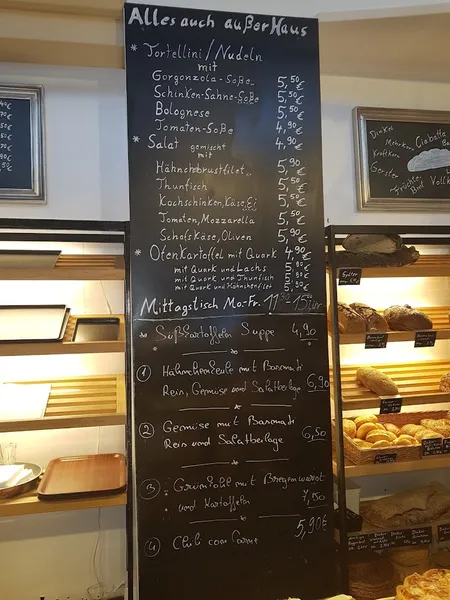 Alles auch außer Haus
* Tortellini/Nudeln
mit
Gorgonzola-Soße 5,50€
Schinken-Sahne-Soße 5,50€
Bolognese 5,50€
Tomaten-Soße 4,90€
* Salat gemischt 4,90€
mit
Hähnchenbrustfilet 5,90€
Thunfisch 5,50€
Kochschinken, Käse, Ei 5,50€
Tomaten, Mozzarella 5,50€
Schafskäse, Oliven 5,90€
* Ofenkartoffel mit Quark 4,90€
mit Quark und Lachs 5,90€
mit Quark und Thunfisch
mit Quark und Hähnchenfilet 5,90€
Mittagstisch Mo.-Fr. 11:30-15:00 Uhr
Süßkartoffeln Suppe 4,90
1 Hähnchenkeule mit Basmati
Reis, Gemüse und Salatbeilage 6,90
2 Gemüse mit Basmati
Reis und Salatbeilage 6,50
3 Grünkohl mit Bregenwurst
und Kartoffeln 7,50
5,90€
4 Chili con Carne
Dinkel
Mehrkorn
Kraftkorn
Gerster
Ciabatta
Früchte
Brot